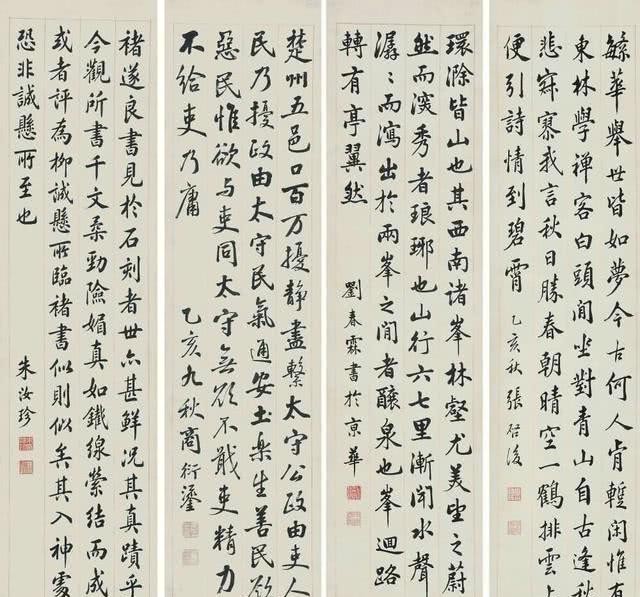 緐華舉世皆如夢今古何人肯暫閒惟有
東林學禪客白頭閒坐對青山自古逢秋
悲寂寥我言秋日勝春朝晴空一鶴排雲上
便引詩情到碧霄 乙亥秋 張啓後
環滁皆山也其西南諸峯林壑尤美望之蔚
然而深秀者琅琊也山行六七里漸聞水聲
潺〻而瀉出於兩峯之間者釀泉也峯迴路
轉有亭翼然 劉春霖書於京華
楚州五邑口百万擾靜盡繫太守公政由吏人
民乃擾政由太守民氣通安土樂生善民欲
惡民惟欲与吏同太守無欲不戢吏精力
不給吏乃庸 乙亥九秋商衍鎏
褚遂良書見於石刻者世亦甚鮮況其真蹟乎
今觀所書千文柔勁險媚真如鐵線縈結而成
或者評為柳誠懸所臨褚書似則似矣其入神處
恐非誠懸所至也 朱汝珍